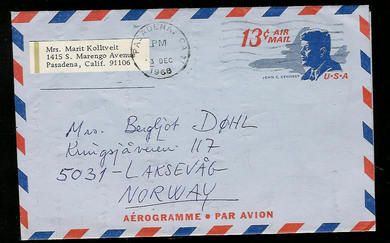 Mrs. Marit Kolltveit
1415 S. Marengo Avenue
Pasadena, Calif. 91106
PASADENA, CA
PM
3 DEC
1968
13¢ AIR
MAIL
JOHN F. KENNEDY
U·S·A
Mrs. Bergljot DØHL
Kringsjåveien 117
5031 - LAKSEVÅG
NORWAY
AÉROGRAMME • PAR AVION